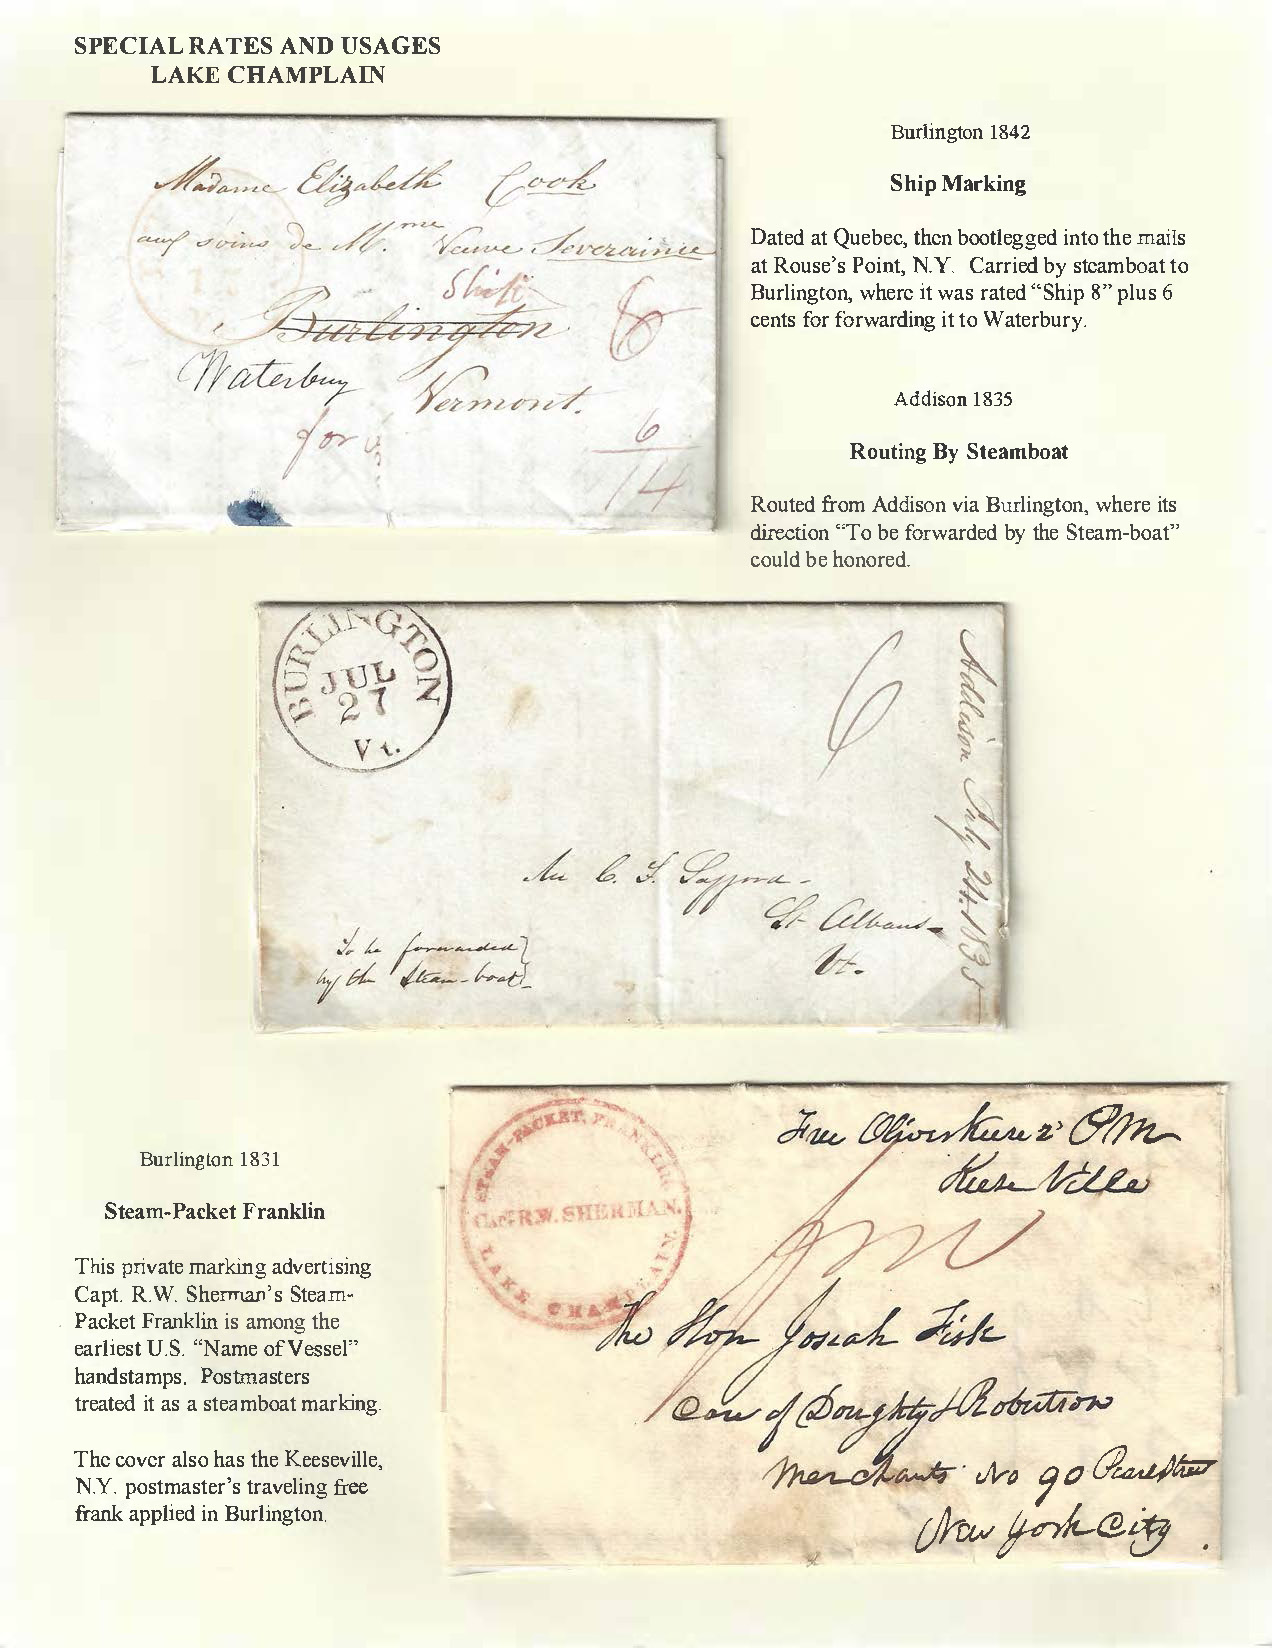 SPECIAL RATES AND USAGES
LAKE CHAMPLAIN
Madame Elizabeth Cook
aux soins de M.me Veuve Severaince
Ship
8
Burlington
Waterbury
Vermont.
for
6
14
Burlington 1842
Ship Marking
Dated at Quebec, then bootlegged into the mails
at Rouse's Point, N.Y. Carried by steamboat to
Burlington, where it was rated "Ship 8" plus 6
cents for forwarding it to Waterbury.
Addison 1835
Routing By Steamboat
Routed from Addison via Burlington, where its
direction "To be forwarded by the Steam-boat"
could be honored.
BURLINGTON
JUL
27
Vt.
6
Addison July 24. 1835
C. F. Safford
St Albans
Vt.
To be forwarded
by the Steam-boat
Burlington 1831
Steam-Packet Franklin
This private marking advertising
Capt. R.W. Sherman's Steam-
Packet Franklin is among the
earliest U.S. "Name of Vessel"
handstamps. Postmasters
treated it as a steamboat marking.
The cover also has the Keeseville,
N.Y. postmaster's traveling free
frank applied in Burlington.
STEAM-PACKET, FRANKLIN,
CAPT R.W. SHERMAN.
LAKE CHAMPLAIN.
Free Oliver Keese 2d PM
Keese Ville
The Hon Josiah Fisk
Care of Doughty & Robertson
Merchants No 90 Pearl Street
New York City.